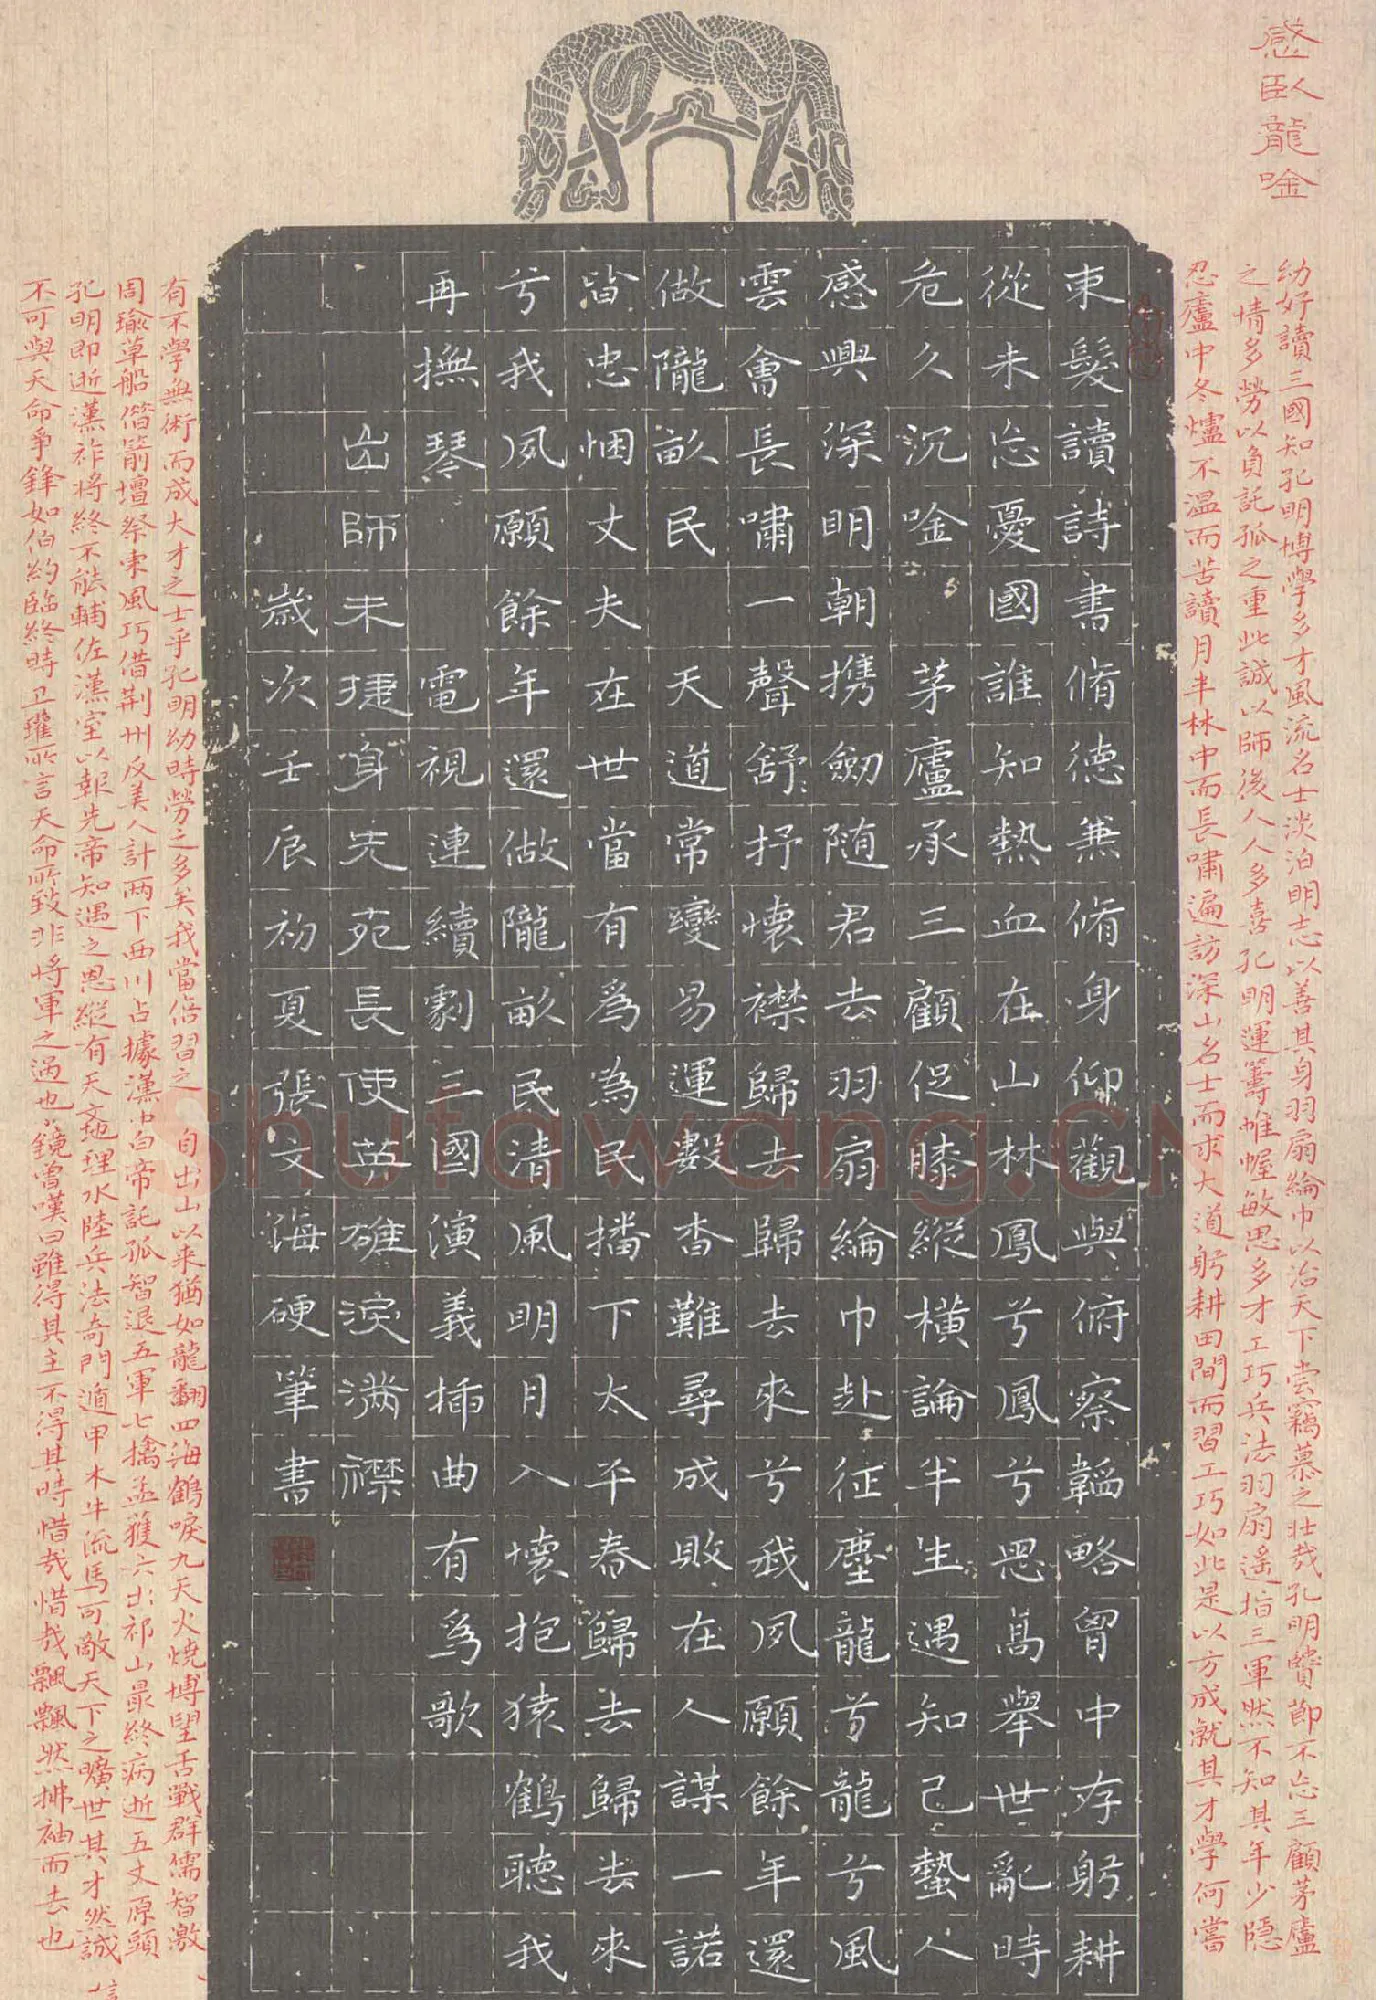 感臥龍唫
幼好讀三國知孔明博學多才風流名士淡泊明志以善其身羽扇綸巾以治天下尝竊慕之壮哉孔明
節不忘三顧茅廬
之情多勞以負託孤之重此誠以師後人人多喜孔明運籌帷幄敏思多才工巧兵法羽扇遙指三軍然不知其年少隱
忍廬中冬爐不溫而苦讀月半林中而長嘯遍訪深山名士而求大道躬耕田間而習工巧如此是以方成就其才學何嘗
束髮讀詩書脩德兼脩身仰觀與俯察韜略胷中存躬耕
從未忘憂國誰知熱血在山林鳳兮鳳兮思高舉世亂時
危久沉唫 茅廬承三顧促膝縱橫論半生遇知己蟄人
感興深明朝携劒随君去羽扇綸巾赴征塵龍兮龍兮風
雲會長嘯一聲舒抒懷襟歸去歸去來兮我夙願餘年還
做隴畝民 天道常變易運數杳難尋成敗在人謀一諾
皆忠悃丈夫在世當有爲為民播下太平春歸去歸去來
兮我夙願餘年還做隴畝民清風明月入懷抱猿鶴聽我
再撫琴 電視連續劇三國演義插曲有爲歌
出師未捷身先死長使英雄淚满襟
歲次壬辰初夏張文海硬筆書
有不學無術而成大才之士乎孔明幼時勞之多矣我當倍習之 自出山以来猶如龍翻四海鶴唳九天火燒博望舌戰群儒智激
周瑜草船借箭壇祭東風巧借荆州反美人計两下西川占據漢中白帝託孤智退五軍七擒孟獲六出祁山最終病逝五丈原頭
孔明即逝漢祚將終不能輔佐漢室以報先帝知遇之恩縱有天文地理水陸兵法奇門遁甲木牛流馬可敵天下之曠世其才然誠
不可與天命爭鋒如伯約臨終時卫瓘所言天命所致非将軍之過也
鏡曾嘆曰雖得其主不得其時惜哉惜哉飄飄然拂袖而去也
Shufawang.CN